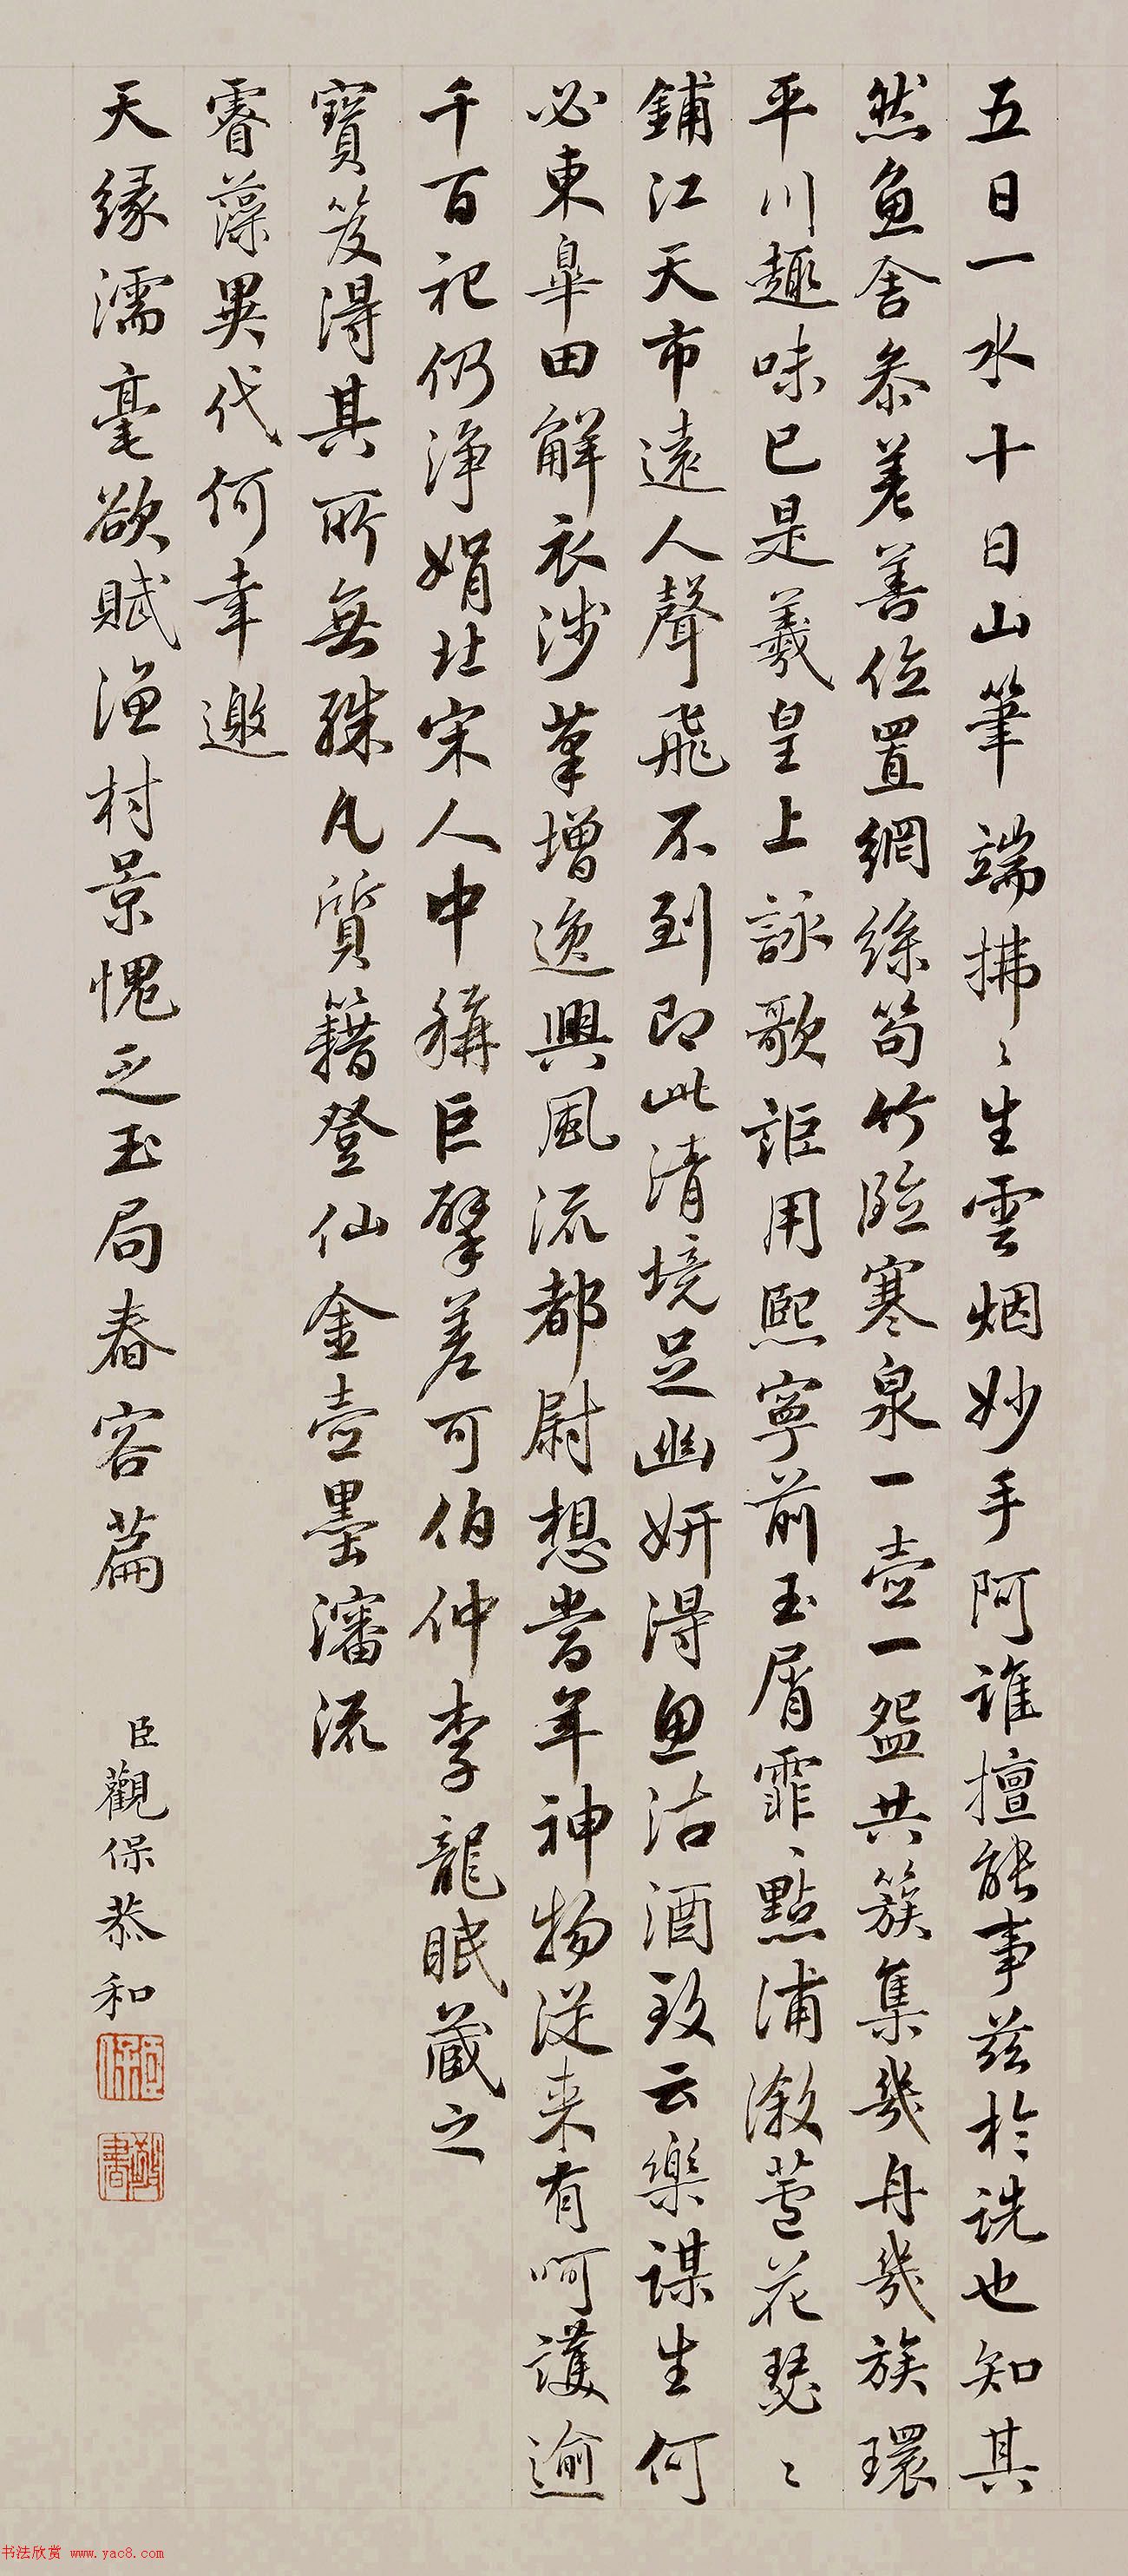 五日一水十日山筆端拂〻生雲烟妙手阿誰擅能事茲於詵也知其
然魚舍參差善位置網絲笱竹臨寒泉一壺一盌共簇集幾舟幾族環
平川趣味已是羲皇上詠歌詎用熙寧前玉屑霏〻點浦漵蒼花瑟〻
鋪江天市遠人聲飛不到即此清境足幽妍得魚沽酒致云樂謀生何
必東皐田解衣涉筆增逸興風流都尉想當年神物從来有呵護逾
千百祀仍淨娟北宋人中稱巨擘差可伯仲李龍眠藏之
寶笈得其所無殊凡質籍登仙金壺墨瀋流
睿藻異代何幸邀
天緣濡毫欲賦漁村景愧乏玉局春容篇
臣觀保恭和
書法欣赏 www.yac8.com